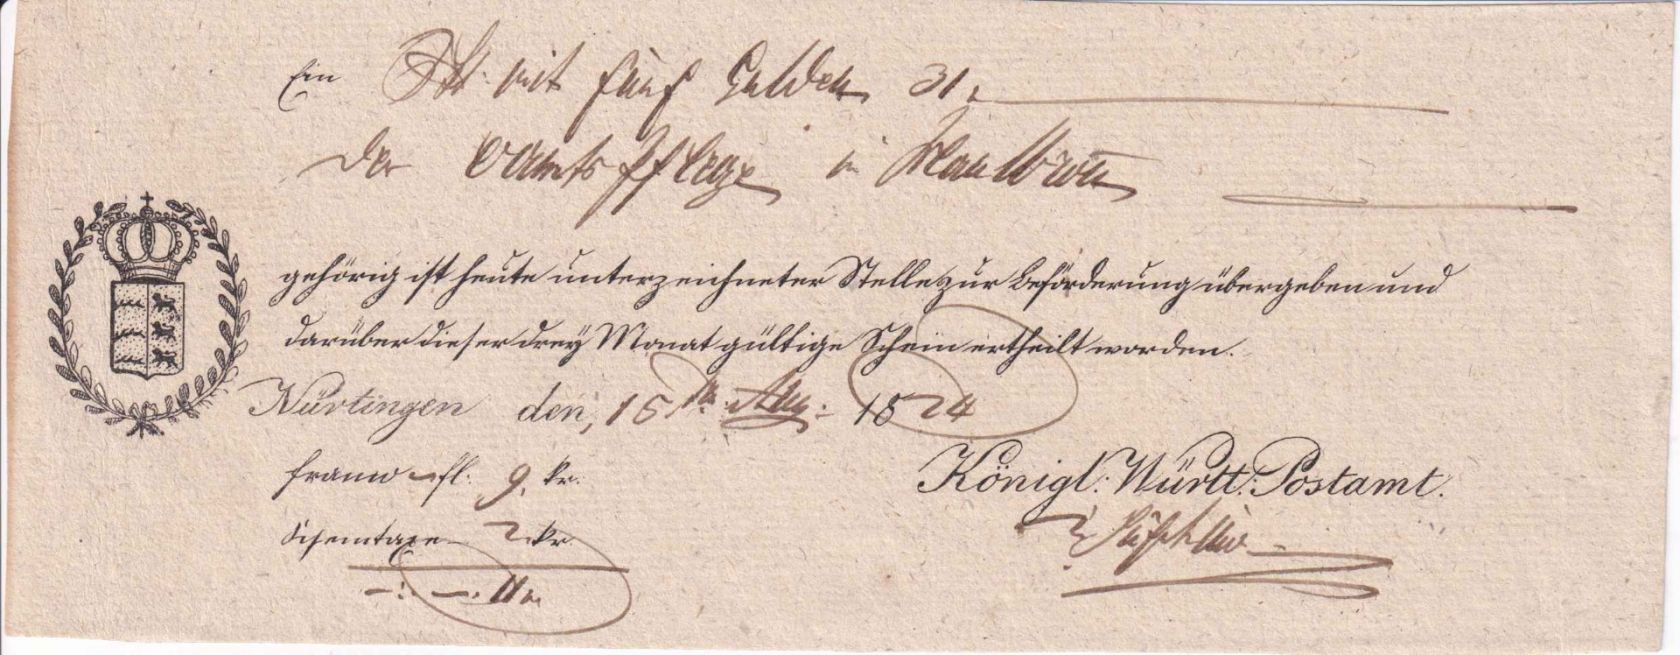 Ein Pkt. mit fünf Gulden 31
der OAmts Pflege in Maulbronn
gehörig ist heute unterzeichneter Stelle zur Beförderung übergeben und
darüber dieser drey Monat gültige Schein ertheilt worden.
Nürtingen den, 15 Aug: 1824
franco fl. 9. kr.
Scheintaxe 2 kr.
Königl: Württ: Postamt.
11